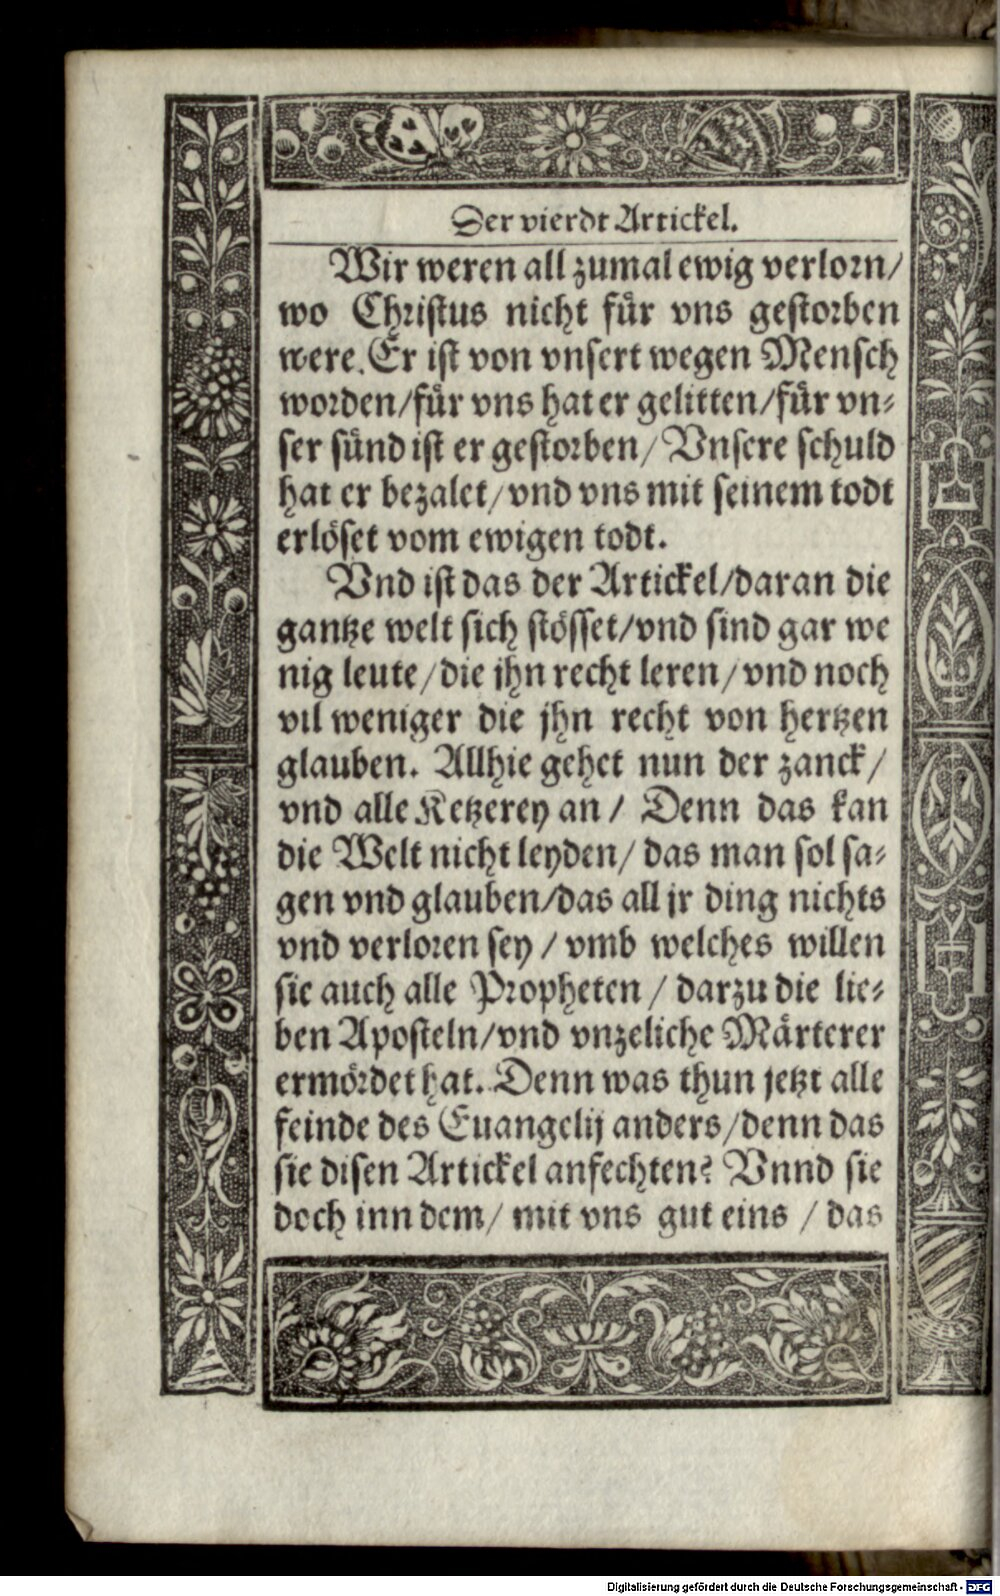 Der vierdt Artickel.
Wir weren all zumal ewig verlorn/
wo Christus nicht für vns gestorben
were. Er ist von vnsert wegen Mensch
worden/für vns hat er gelitten/für vn-
ser sünd ist er gestorben/ Vnsere schuld
hat er bezalet/ vnd vns mit seinem todt
erlöset vom ewigen todt.
Vnd ist das der Artickel/daran die
gantze welt sich stösset/vnd sind gar we
nig leute/die jhn recht leren/ vnd noch
vil weniger die jhn recht von hertzen
glauben. Allhie gehet nun der zanck/
vnd alle Ketzerey an / Denn das kan
die Welt nicht leyden/ das man sol sa-
gen vnd glauben/das all jr ding nichts
vnd verloren sey / vmb welches willen
sie auch alle Propheten / darzu die lie-
ben Aposteln/vnd vnzeliche Märterer
ermördet hat. Denn was thun jetzt alle
feinde des Euangelij anders/denn das
sie disen Artickel anfechten? Vnnd sie
doch inn dem/ mit vns gut eins / das
Digitalisierung gefördert durch die Deutsche Forschungsgemeinschaft - DFG